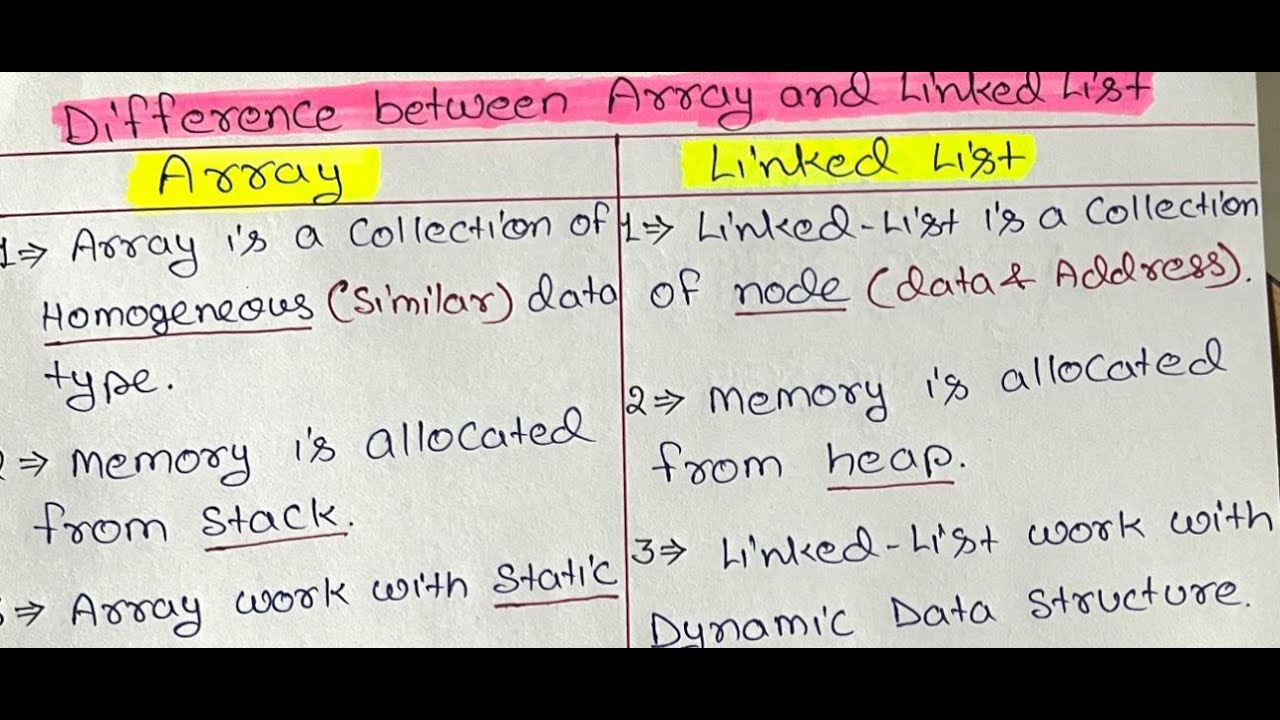 Difference between Array and Linked List
Array
1⇒ Array is a collection of
Homogeneous (similar) data
type.
⇒ Memory is allocated
from stack.
⇒ Array work with static
Linked List
1⇒ Linked-List is a collection
of node (data & Address).
2⇒ Memory is allocated
from heap.
3⇒ Linked-List work with
Dynamic Data structure.